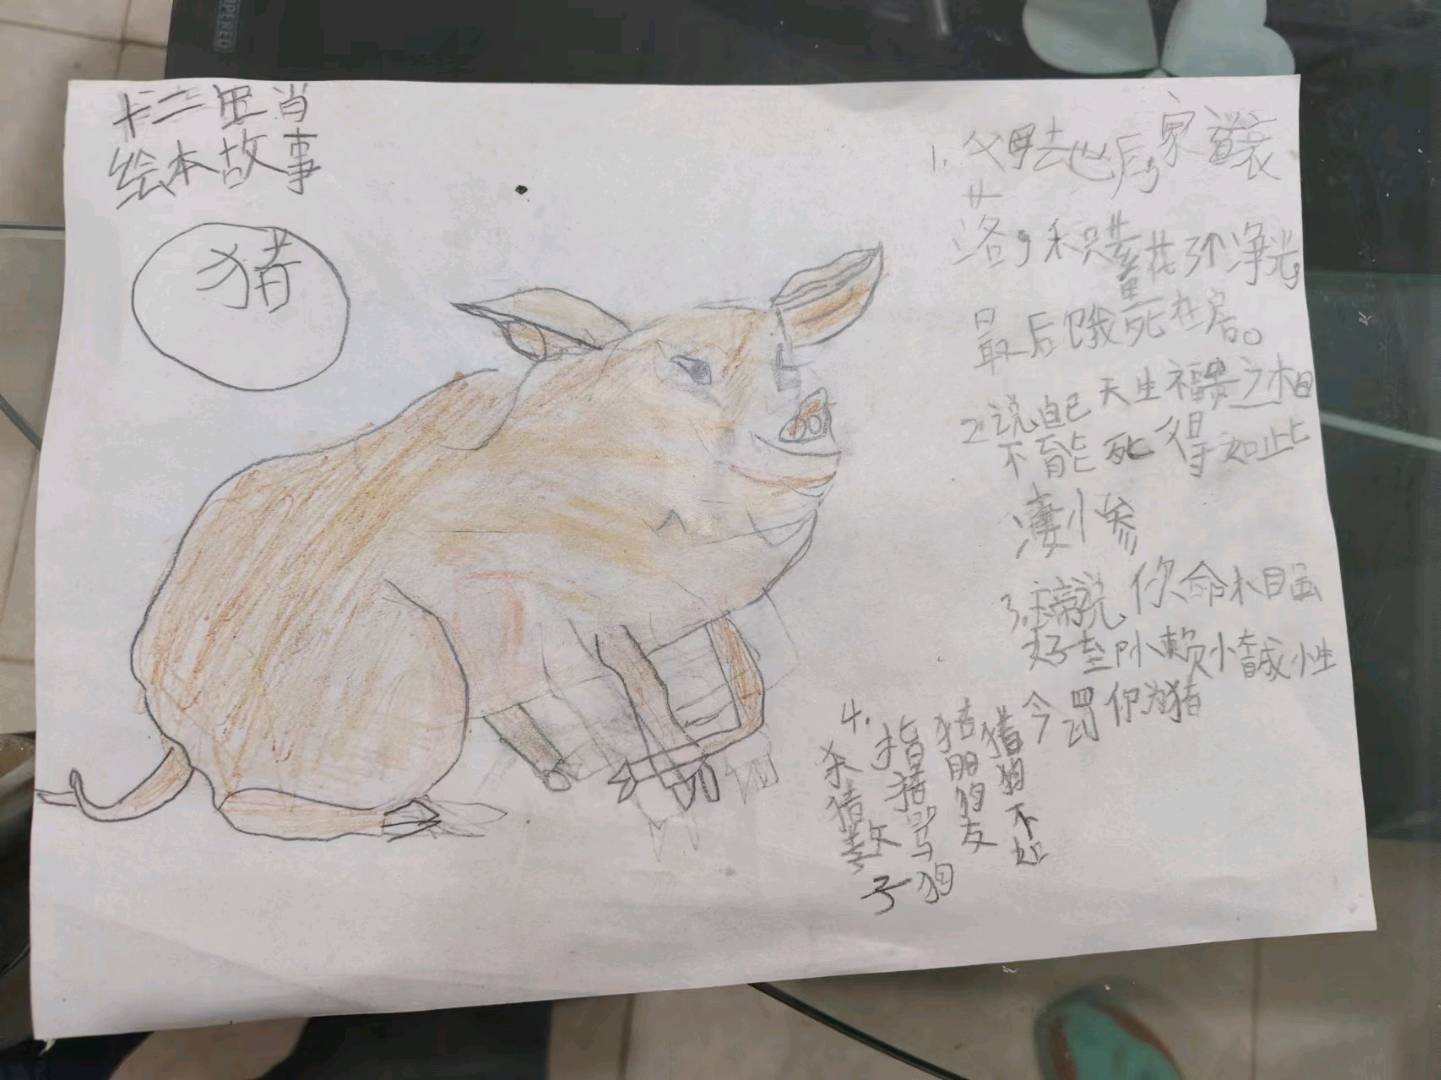 十二生肖
绘本故事
猪
1.父母去世后,家道衰
落,积蓄花了个净光,
最后饿死在房。
2.说自己天生福贵之相
不能死得如此
凄惨
3.玉帝说,你命相虽
好
懒惰成性
今罚你为猪
4.
猪狗不如
猪朋狗友
指猪骂狗
杀猪教子